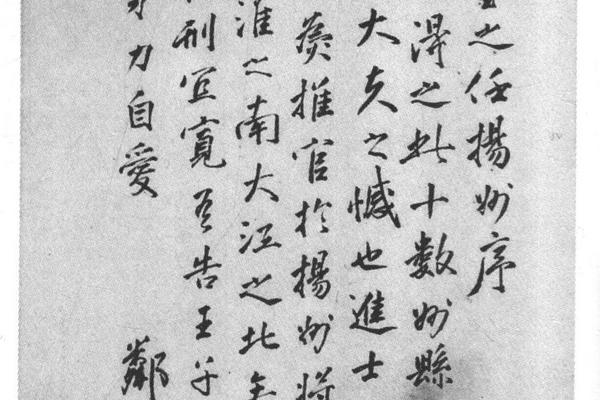 之任揚州序
得之此十數州縣
大夫之憾也進士
推官於揚州將
淮之南大江之北
刑宜寬吾告王
力自愛 鄰